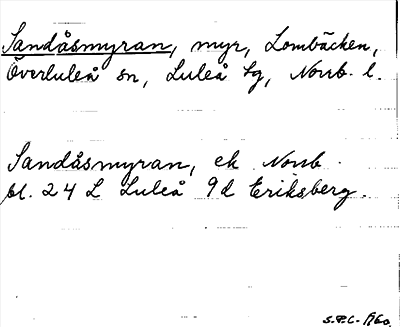 Sandåsmyran, myr, Lombäcken,
Överluleå sn, Luleå tg, Norrb. l.
Sandåsmyran, ek Norrb.
bl. 24 L Luleå 9d Eriksberg.